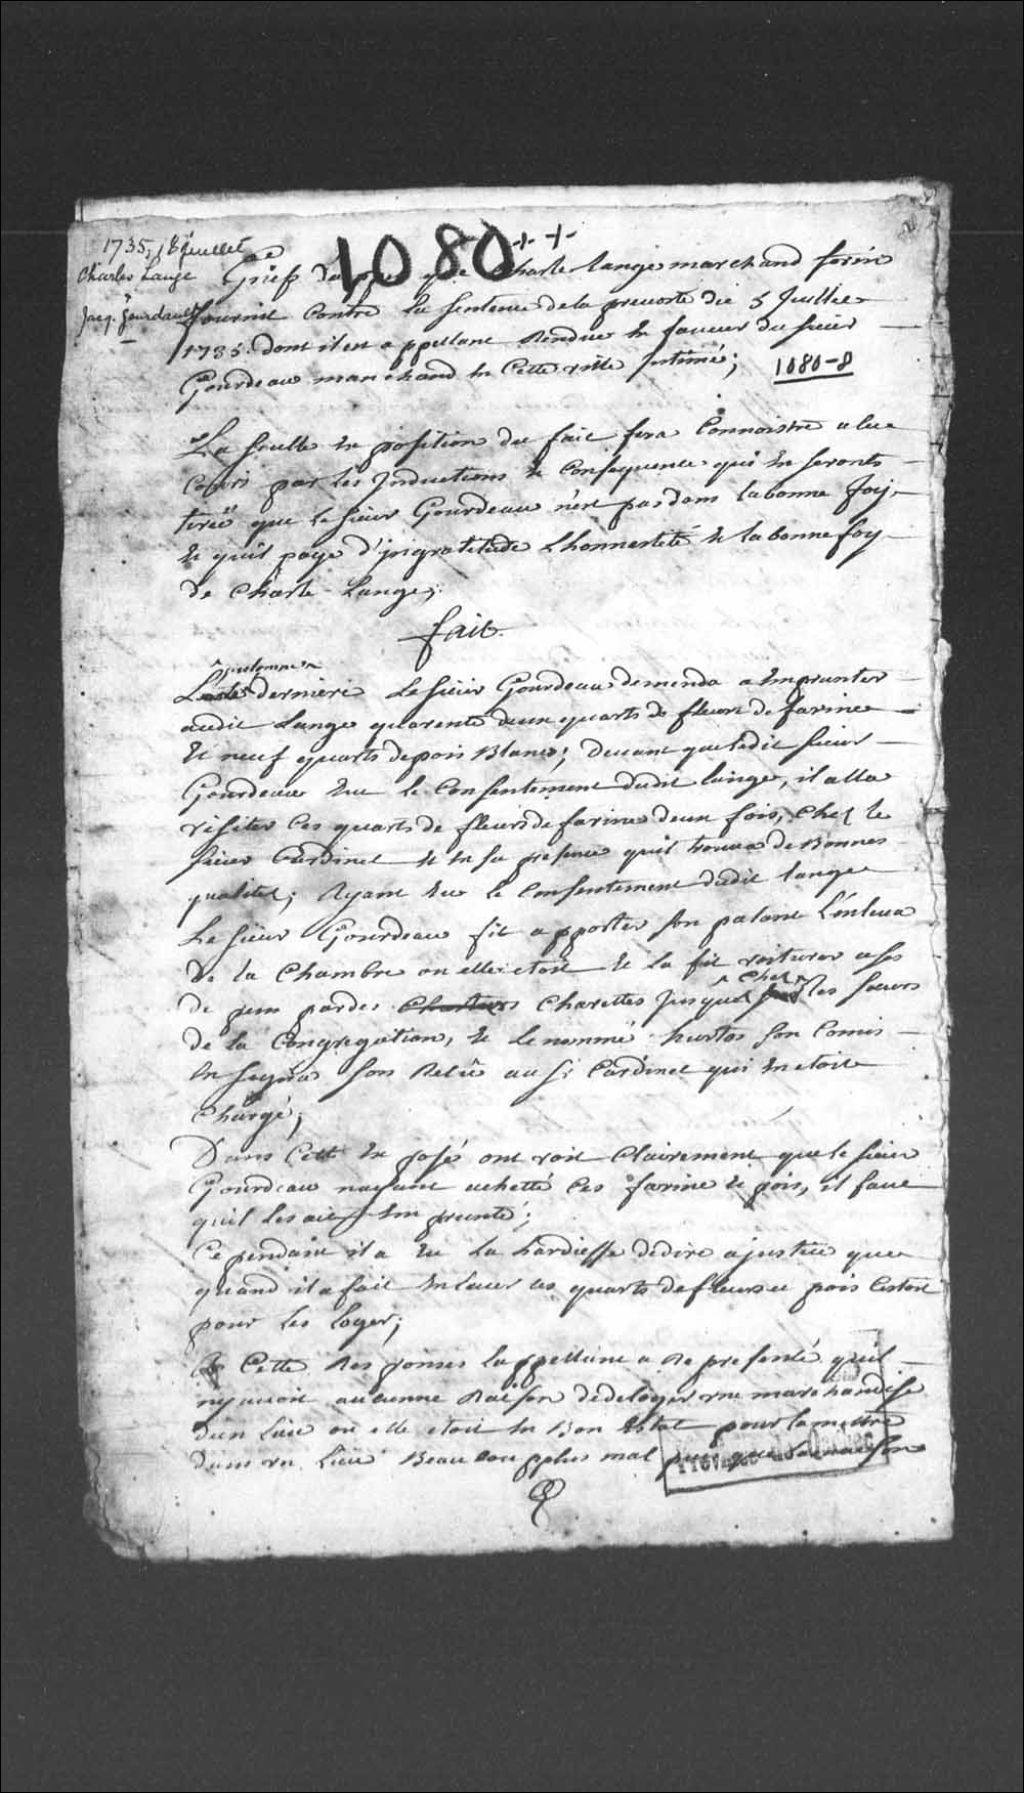 1735, 18 juillet
Charles Lange
Jacq. Gourdault
1080 ++
Grief que Charle lange marchand forin
fournit Contre la sentence dela prevosté du 5 Juillet
1735. dont il est appellant Rendue En faveur du sieur
Gourdeau marchand En Cette ville Intimé;
1080-8
La seulle Exposition du fait fera Connoistre a la
Cour par les Inductions & Consequence qui En seronts
tireé que le sieur Gourdeau n'est pas dans la bonne foy
& quil paye d'jngratitude Lhonnesteté & la bonne foy
de Charle Lange;
fait
^autonne^
L dernière Le sieur Gourdeau demenda a Emprunter
audit Lange quarente deux quarts de fleure de farine
& neuf quarts de pois Blancs; devant que ledit sieur
Gourdeau Eut le Consentement dudit lange, il alla
visiter Ces quarts de fleurs de farine deux fois, Chez le
sieur Cardinet & En sa presence quil trouva de Bonnes
qualités; Ayant Eu le Consentement dudit lange
Le sieur Gourdeau fit apporter son palant L'enleva
De la Chambre ou elle etoit & la fit voiturer a ses
^Chez^
De pem par des Charettes Jusque les soeurs
De la Congregation, & Le nommé hurtos son Comis
En signa son Reçu au Sr Cardinet qui En etoit
Chargé;
Dans Cette Exposé ont voit Clairement que le sieur
Gourdeau nayant achetté Ces farine & pois, il faut
quil les ait Emprunté;
Cependant il a Eu La hardiesse dedire a justice que
quand il a fait Enlever les quarts de fleurs et pois Cestoit
pour les Loger;
A Cette Responses Lappellant a Representé quil
ny avoit aucunne Raison dedeloger une marchandise
d'un Lieu ou elle etoit En Bon Estat pour la mettre
dans un Lieu Beaucoup plus mal puis que La maison
Province de Québec